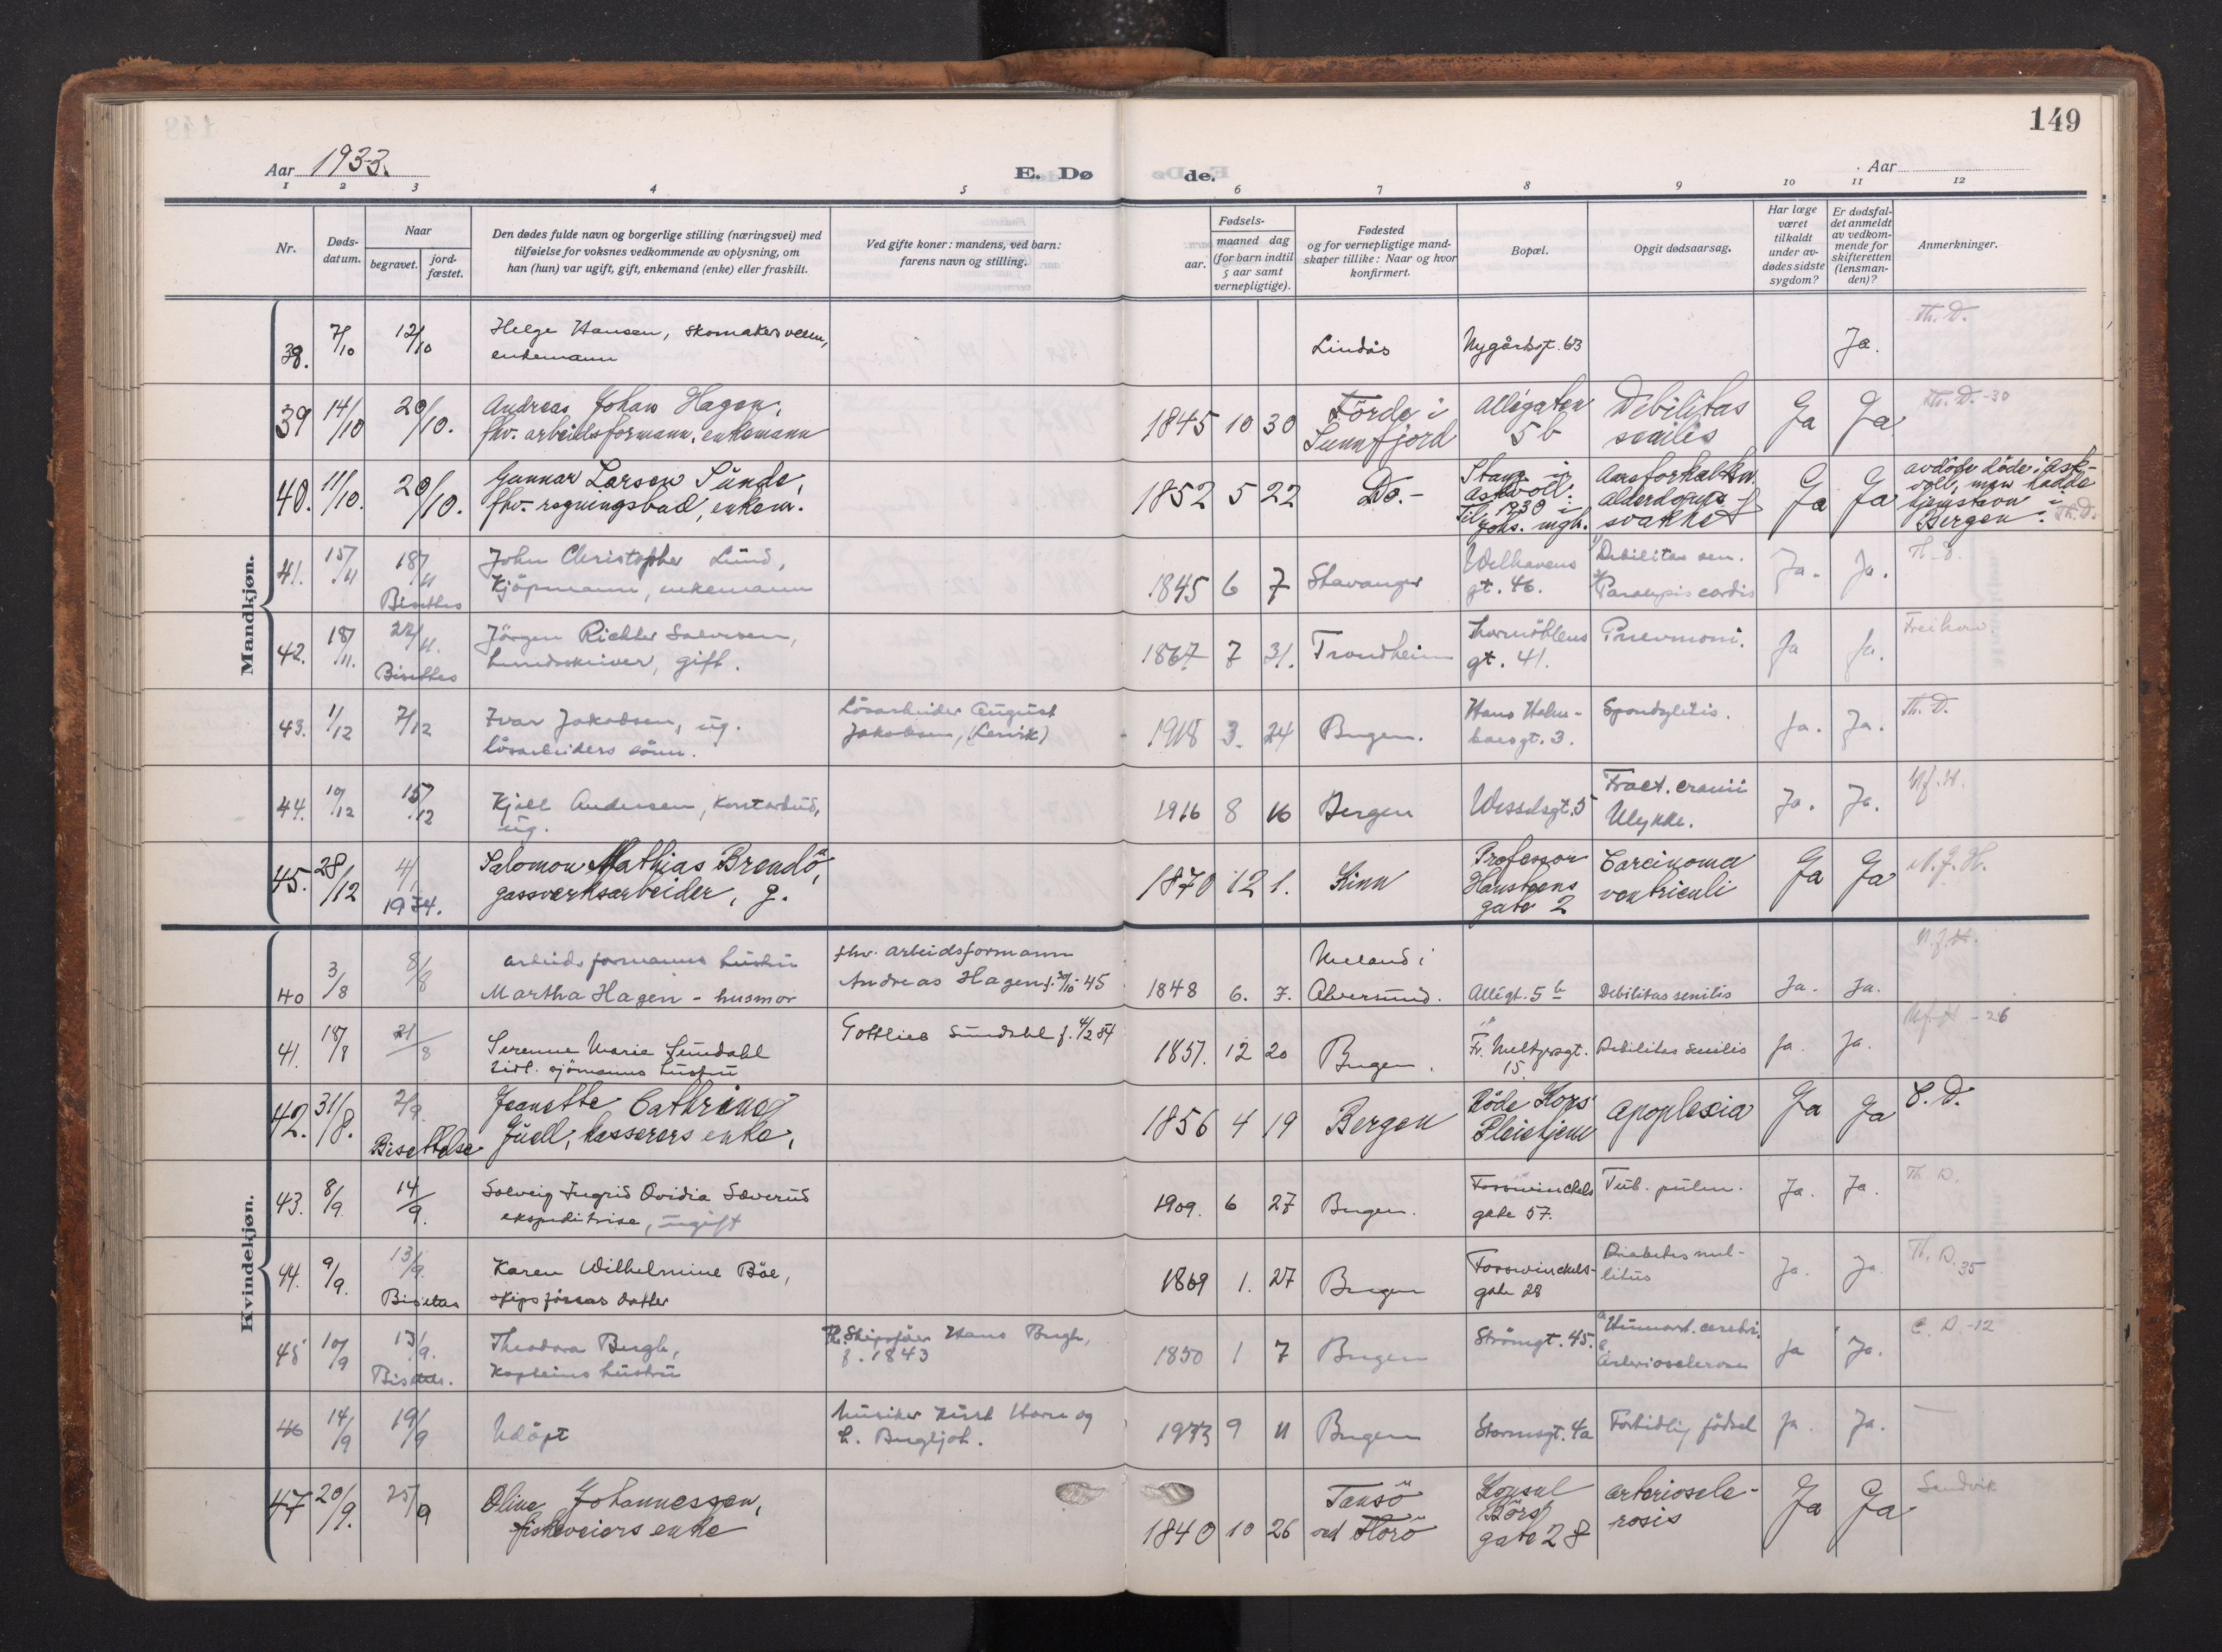 149
Aar 1933.
E. Dø
de.
Aar
1 2 3 4 5 6 7 8 9 10 11 12
Nr.
Døds-
datum.
Naar
begravet.
jord-
fæstet.
Den dødes fulde navn og borgerlige stilling (næringsvei) med
tilføielse for voksnes vedkommende av oplysning, om
han (hun) var ugift, gift, enkemand (enke) eller fraskilt.
Ved gifte koner: mandens, ved barn:
farens navn og stilling.
Fødsels-
aar.
maaned dag
(for barn indtil
5 aar samt
vernepligtige).
Fødested
og for vernepligtige mand-
skaper tillike: Naar og hvor
konfirmert.
Bopæl.
Opgit dødsaarsag.
Har læge
været
tilkaldt
under av-
dødes sidste
sygdom?
Er dødsfal-
det anmeldt
av vedkom-
mende for
skifteretten
(lensman-
den)?
Anmerkninger.
Mandkjøn.
38. 7/10 12/10 Helge Hansen, skomakersvenn,
enkemann
Lindås Nygårdsgt. 63 Ja. Th. D.
39 14/10 20/10. Andreas Johan Hagen,
fhv. arbeidsformann, enkemann
1845 10 30 Förde i
Sunnfjord
Allégaten
5 b
Debilitas
senilis
Ja Ja Th. D. -30
40. 11/10. 20/10. Gunnar Larsen Sunde,
fhv. regningsbud, enkem.
1852 5 22 Do. -
Stang i
Askvoll:
til 1930 i
Joh. mgh.
Aareforkalkn.
alderdoms-
svakhet
Ja Ja
avdöde döde i Ask-
voll, men hadde
hjemstavn i
Bergen. Th. D.
41. 15/11 18/11 Bisettes
John Christopher Lund,
Kjöpmann, enkemann
1845 6 7 Stavanger
Welhavens
gt. 46.
1) Debilitas sen.
2) Paralysis cordis
Ja. Ja.
42. 18/11. 22/11. Bisettes
Jörgen Richter Salvesen,
gift.
1867 7 31. Trondheim
Thormöhlens
gt. 41.
Pneumoni.
Ja Ja.
43. 1/12 7/12 Ivar Jakobsen, ug.
lösarbeiders sönn.
Lösarbeider August
Jakobsen, (Lervik)
1918 3. 24 Bergen.
Hans Holm-
boesgt. 3.
Spondylitis.
Ja. Ja. Th. D.
44. 10/12 15/12 Kjell Andersen, kontorbud,
ug.
1916 8 16 Bergen Wesselsgt. 5
Fract. cranii
Ulykke.
Ja. Ja. N. f. H.
45. 28/12 4/1 1934.
Salomon Mathias Brendö,
gassverksarbeider, g.
1870 12 1. Kinn
Professor
Hansteens
gate 2
Carcinoma
ventriculi
Ja Ja N. f. H.
Kvindekjøn.
40 3/8 8/8 arbeidsformanns hustru
Martha Hagen - husmor
fhv. arbeidsformann
Andreas Hagen f. 30/10 45
1848 6. 7. i
Alversund.
Allégt. 5 b Debilitas senilis Ja. Ja. N. f. H.
41. 18/8 21/8 Serenne Marie Sundahl
tidl. sjömanns hustru
Gottlieb Sundahl f. 4/2 54
1857. 12 20 Bergen.
Fr. Meltzersgt.
15.
Debilitas senilis Ja. Ja. N. f. H. - 26
42. 31/8. 2/9. Bisettelse
Jeanette Cathrine
Juell, kasserers enke,
1856 4 19 Bergen
Röde Kors
Pleiehjem
Apoplexia Ja Ja C. D.
43. 8/9. 14/9. Solveig Ingrid Ovidia Sæverud
ekspeditrise, ugift
1909. 6 27 Bergen.
Fosswinckels
gate 57.
Tub. pulm. Ja. Ja. Th. D.
44. 9/9. 13/9. Bisettes
Karen Wilhelmine Böe,
skipsförers datter
1869 1. 27 Bergen
Fosswinckels-
gate 28
Diabetes mel-
litus
Ja. Ja. Th. D. 35
45 10/9 13/9. Bisettes.
Theodora Bergh,
Kapteins hustru
Fh. Skipsförer Hans Bergh,
f. 1843
1850 1 7 Bergen Strömgt. 45.
cerebri.
Arteriosclerose
Ja Ja. C. D. -12
46 14/9 19/9 Udöpt
Musiker og
1933 9 11 Bergen Stormsgt. 4a Fortidlig födsel Ja. Ja. —
47 20/9. 25/9 Oline Johannessen,
fiskeveiers enke
1840 10 26 Tansö
ved Florö
Konsul
Börs
gate 28
arterioscle-
rosis
Ja Ja Sandvik